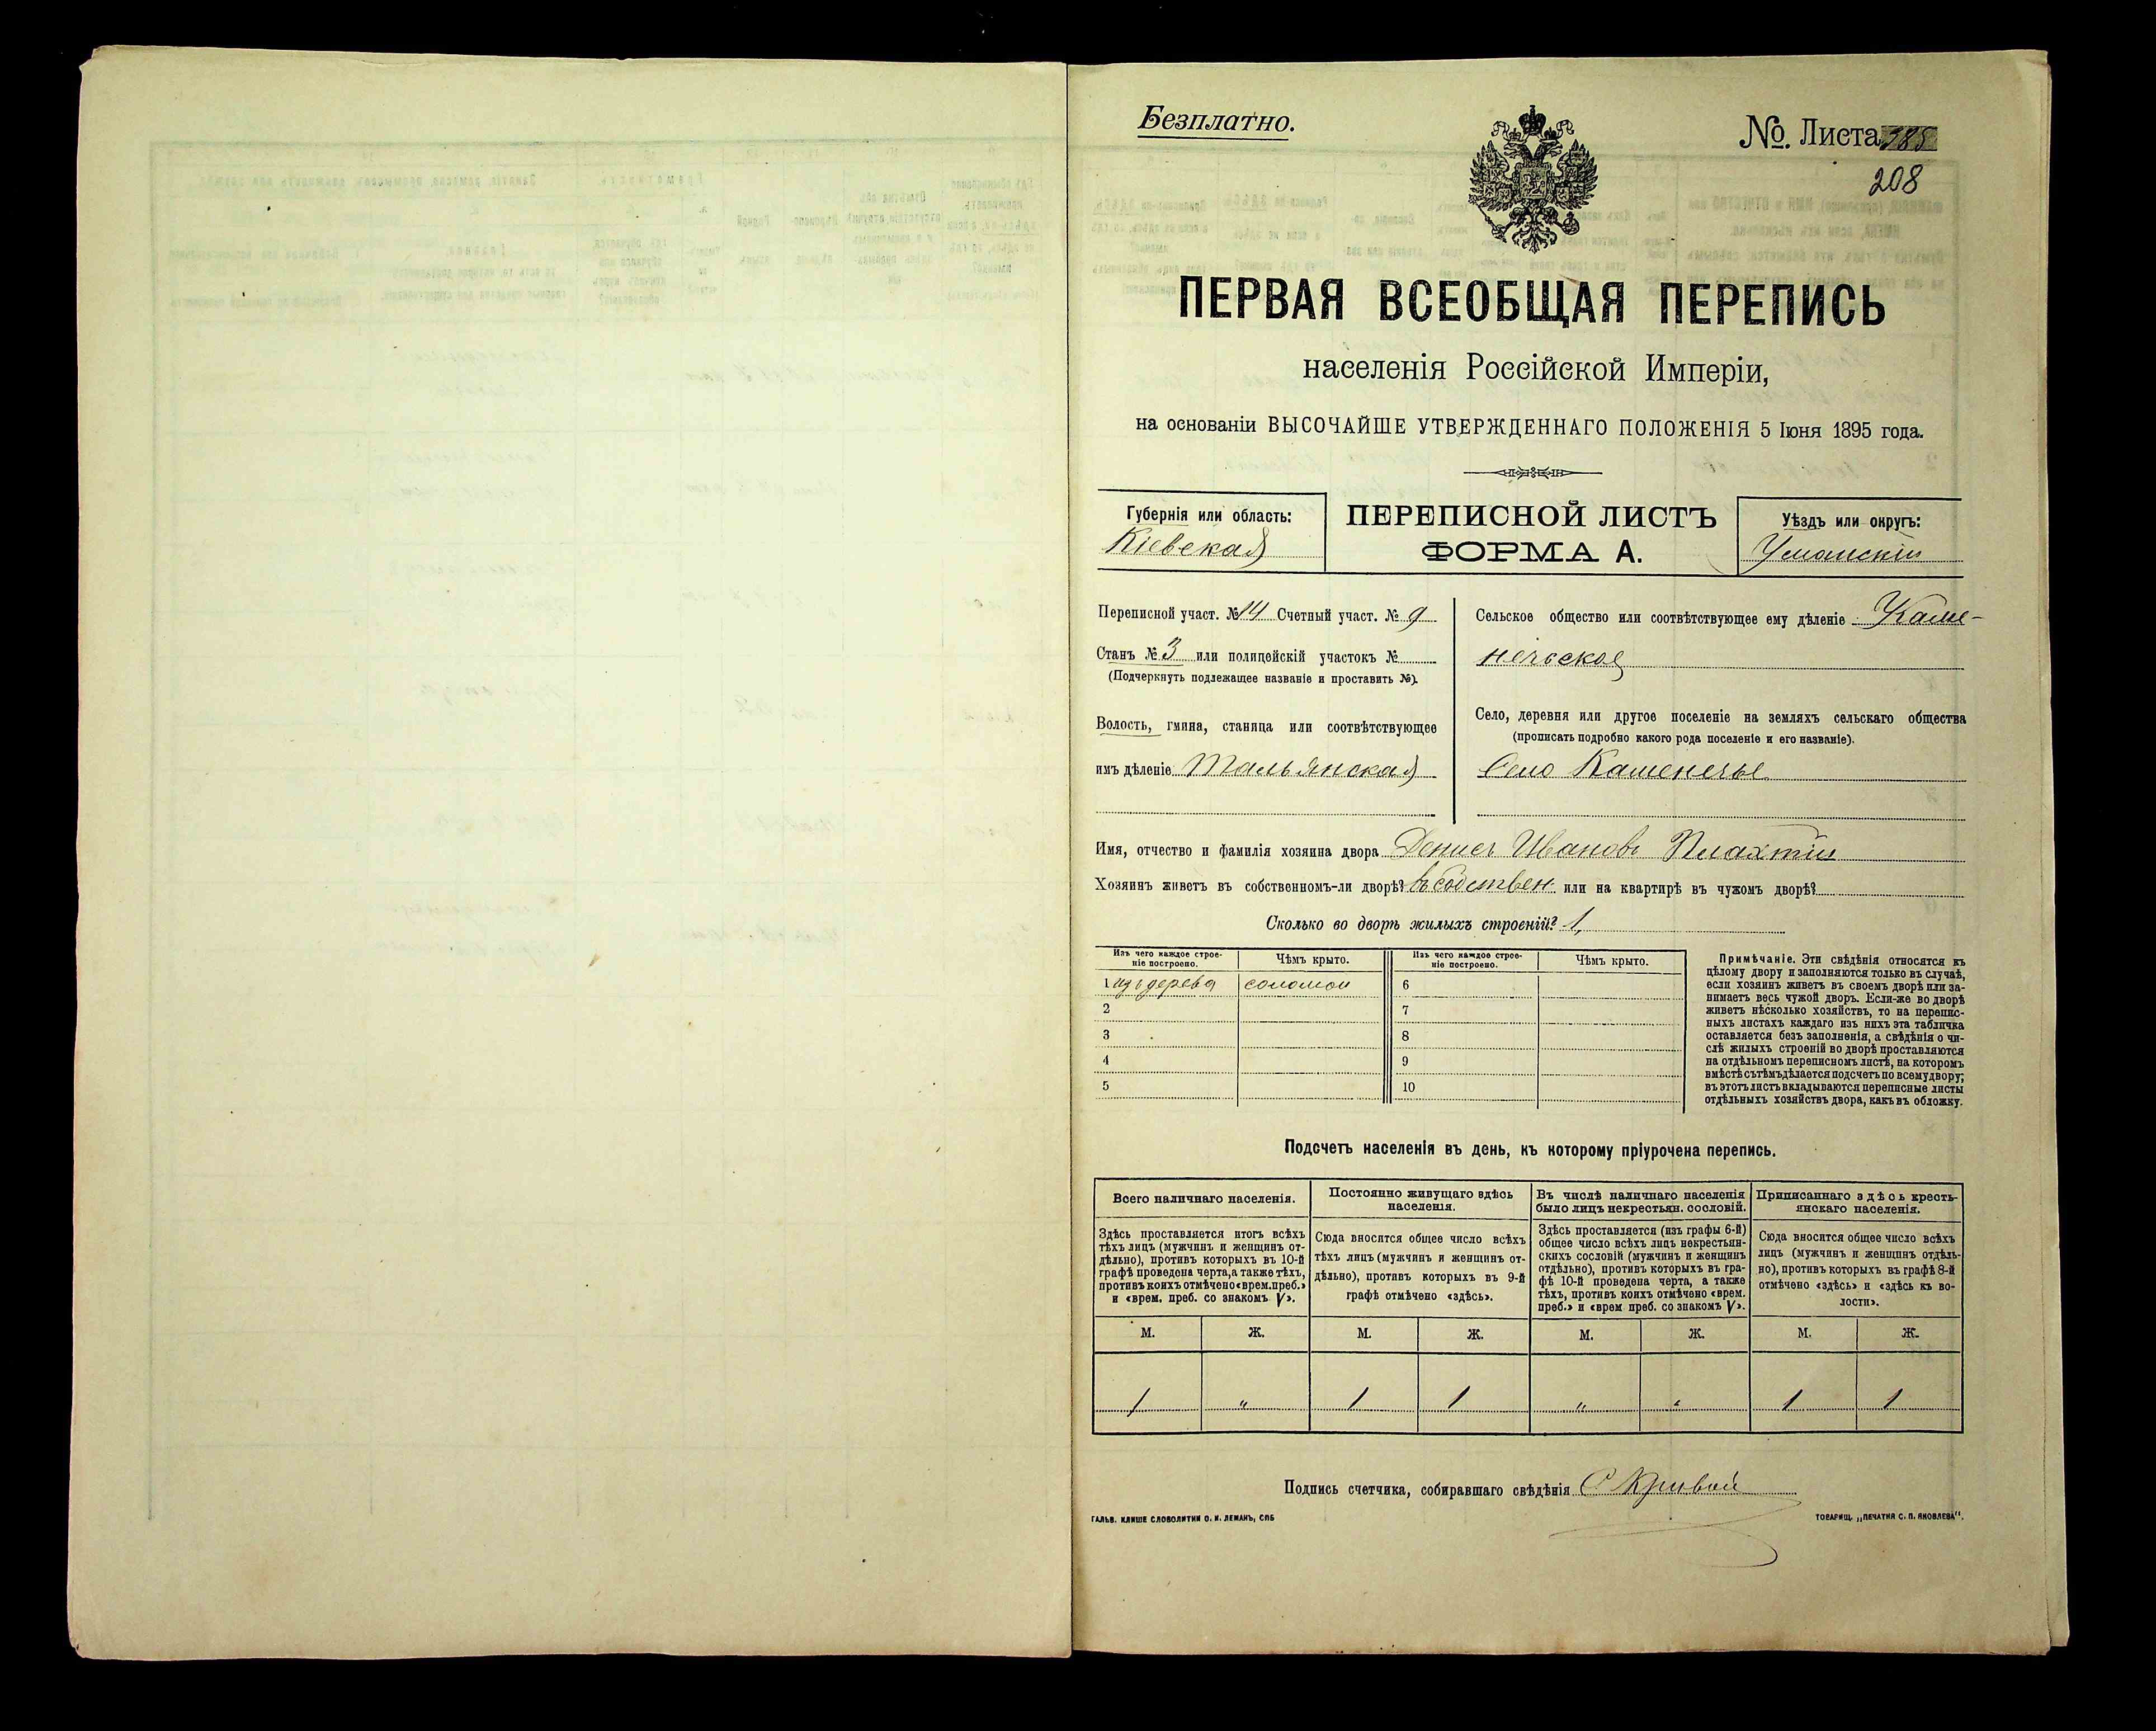 Безплатно.
№ Листа 385
208
ПЕРВАЯ ВСЕОБЩАЯ ПЕРЕПИСЬ
населенія Россійской Имперіи,
на основаніи ВЫСОЧАЙШЕ УТВЕРЖДЕННАГО ПОЛОЖЕНІЯ 5 Іюня 1895 года.
Губернія или область:
Кіевская
ПЕРЕПИСНОЙ ЛИСТЪ
ФОРМА А.
Уѣздъ или округъ:
Уманскій
Переписной участ. № 14 Счетный участ. № 9
Станъ № 3 или полицейскій участокъ №
(Подчеркнуть подлежащее названіе и проставить №).
Волость, гмина, станица или соотвѣтствующее
имъ дѣленіе Тальянская
Сельское общество или соотвѣтствующее ему дѣленіе Каме-
нечьское
Село, деревня или другое поселеніе на земляхъ сельскаго общества
(прописать подробно какого рода поселеніе и его названіе).
Село Каменечье
Имя, отчество и фамилія хозяина двора Денисъ Ивановъ Плахтій
Хозяинъ живетъ въ собственномъ-ли дворѣ? въ собствен. или на квартирѣ въ чужомъ дворѣ?
Сколько во дворѣ жилыхъ строеній? 1,
Изъ чего каждое строе-
ніе построено.
Чѣмъ крыто.
Изъ чего каждое строе-
ніе построено.
Чѣмъ крыто.
1 изъ дерева соломой 6
2 7
3 8
4 9
5 10
Примѣчаніе. Эти свѣдѣнія относятся къ
цѣлому двору и заполняются только въ случаѣ,
если хозяинъ живетъ въ своемъ дворѣ или за-
нимаетъ весь чужой дворъ. Если-же во дворѣ
живетъ нѣсколько хозяйствъ, то на перепис-
ныхъ листахъ каждаго изъ нихъ эта табличка
оставляется безъ заполненія, а свѣдѣнія о чи-
слѣ жилыхъ строеній во дворѣ проставляются
на отдѣльномъ переписномъ листѣ, на которомъ
вмѣстѣ съ тѣмъ дѣлается подсчетъ по всему двору;
въ этотъ листъ вкладываются переписные листы
отдѣльныхъ хозяйствъ двора, какъ въ обложку.
Подсчетъ населенія въ день, къ которому пріурочена перепись.
Всего наличнаго населенія.
Здѣсь проставляется итогъ всѣхъ
тѣхъ лицъ (мужчинъ и женщинъ от-
дѣльно), противъ которыхъ въ 10-й
графѣ проведена черта, а также тѣхъ,
противъ коихъ отмѣчено «врем. преб.»
и «врем. преб. со знакомъ V».
Постоянно живущаго здѣсь
населенія.
Сюда вносится общее число всѣхъ
тѣхъ лицъ (мужчинъ и женщинъ от-
дѣльно), противъ которыхъ въ 9-й
графѣ отмѣчено «здѣсь».
Въ числѣ наличнаго населенія
было лицъ некрестьян. сословій.
Здѣсь проставляется (изъ графы 6-й)
общее число всѣхъ лицъ некрестьян-
скихъ сословій (мужчинъ и женщинъ
отдѣльно), противъ которыхъ въ гра-
фѣ 10-й проведена черта, а также
тѣхъ, противъ коихъ отмѣчено «врем.
преб.» и «врем преб. со знакомъ V».
Приписаннаго здѣсь кресть-
янскаго населенія.
Сюда вносится общее число всѣхъ
лицъ (мужчинъ и женщинъ отдѣль-
но), противъ которыхъ въ графѣ 8-й
отмѣчено «здѣсь» и «здѣсь къ во-
лости».
М. Ж. М. Ж. М. Ж. М. Ж.
1 " 1 1 " " 1 1
Подпись счетчика, собиравшаго свѣдѣнія С Кривой
ГАЛЬВ. КЛИШЕ СЛОВОЛИТНИ О. И. ЛЕМАНЪ, СПБ
ТОВАРИЩ. „ПЕЧАТНЯ С. П. ЯКОВЛЕВА".